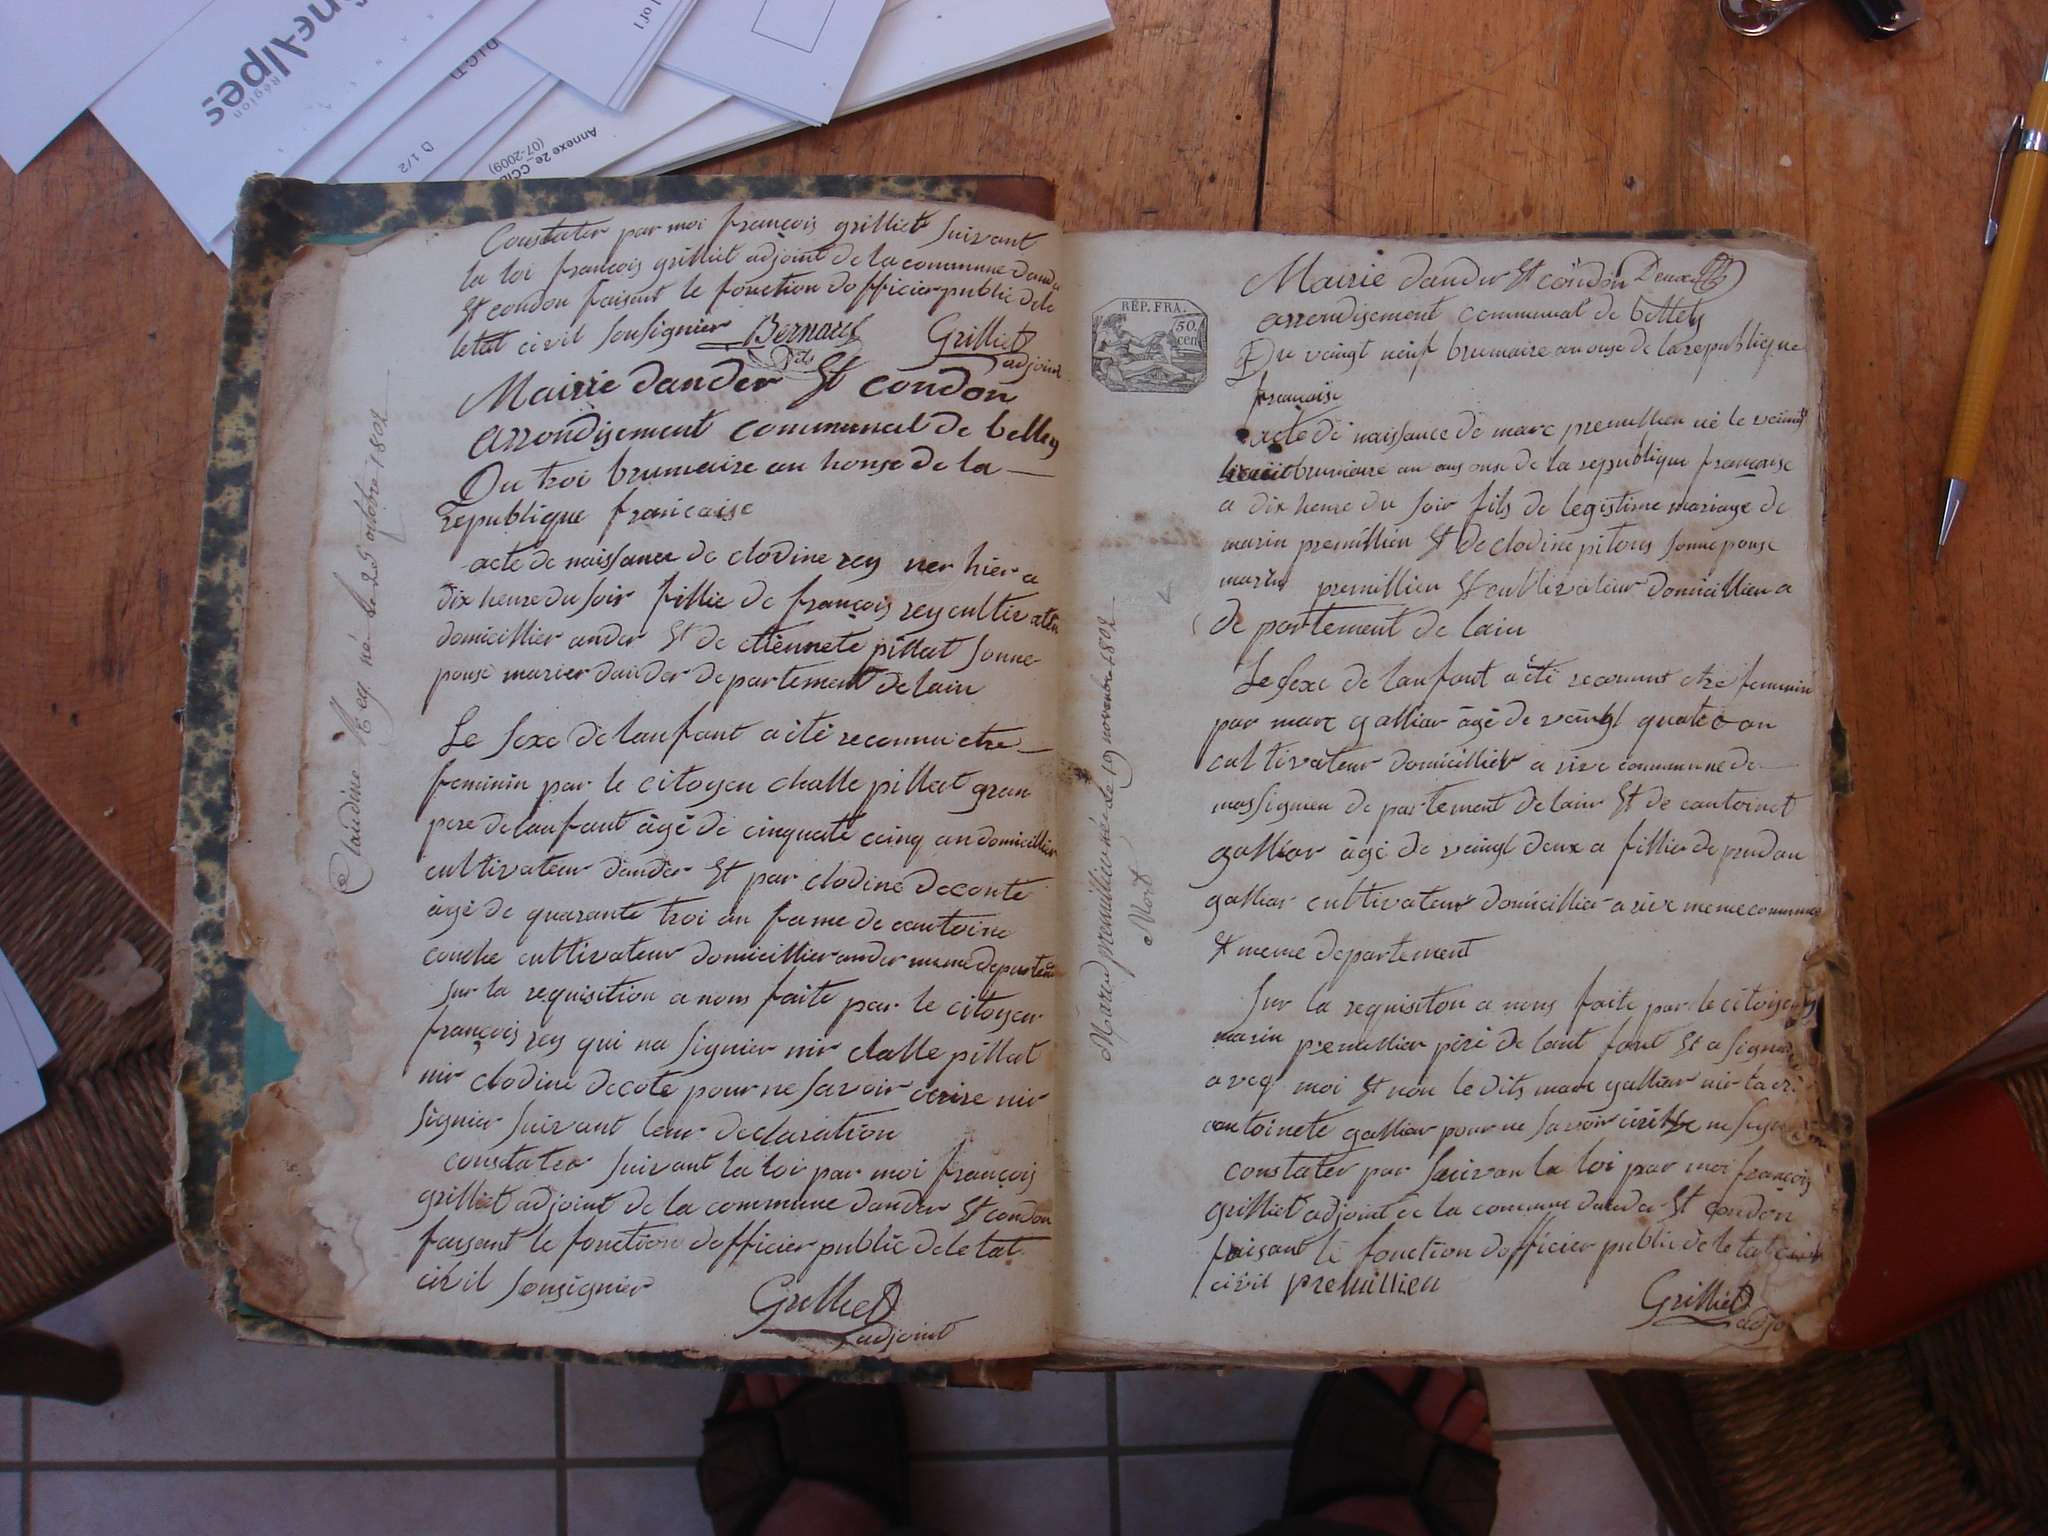 Région
D 1/2
Annexe 2e_CCI
(07-2009)
Constater par moi françois grilliet suivant
la loi françois grilliet adjoint de la commune dande
St condon faisant le fonction dofficier public dele
letat civil sousignier Bernard Grilliet
fils adjoint
Mairie dander St condon
arrondisement communal de belley
Du troi brumaire an honse de la
republique francaise
acte de naissance de clodine rey ner hier a
dix heure du soir fillie de françois rey cultivateu
domicillier ander St de ettiennete pillat sonne
pouse marier dander departement de lain
Le sexe de lanfant a été reconnu etre
feminin par le citoyen challe pillat gran
pere de lanfant âgé de cinquate cinq an domicillier
cultivateur dander St par clodine deconte
âgé de quarante troi an fame de antoine
couche cultivateur domicillier ander meme departem
sur la requisition a nous faite par le citoyen
françois rey qui na signier nir challe pillat
nir clodine decote pour ne savoir ecrire nir
signier suivant leur declaration
constater suivant la loi par moi françois
grilliet adjoint de la commune dander St condon
faisant le fonction dofficier public dele tat
civil sousignier
Grilliet
adjoint
Claudine Rey né le 25 octobre 1802
REP. FRA.
50.
cen
Mairie dander St condon Deux
arrondisement communal de belley
Du vaingt neuf brumaire an onse de la republique
francaise
acte de naissance de marc premillieu né le vaingt
brumaire an ans onse de la republique francaise
a dix heure du soir fils de legistime mariage de
marin premillieu St de clodine pitous sonne pouse
marin premillieu St cultivateur domicillieu a
departement de lain
Le sexe de lanfant a été reconnut etre feminin
par marc galliar âgé de vaingt quatre an
cultivateur domicillier a rire commune de
massignieu departement de lain St de antoinet
galliar âgé de vaingt deux a fillie de prudan
galliar cultivateur domicillier a rire meme commune
St meme departement
Sur la requisiton a nous faite par le citoiyen
marin premillier père de lant fant St a signier
aveq moi St non le dits marc galliar nir
antoinete galliar pour ne savoir ne
constater par suivan la loi par moi françois
grilliet adjoint de la comune dander St condon
faisant le fonction dofficier public dele tat
civil premillieu
Grilliet
adjo
Marc premillieu née le 19 novembre 1802
Mort